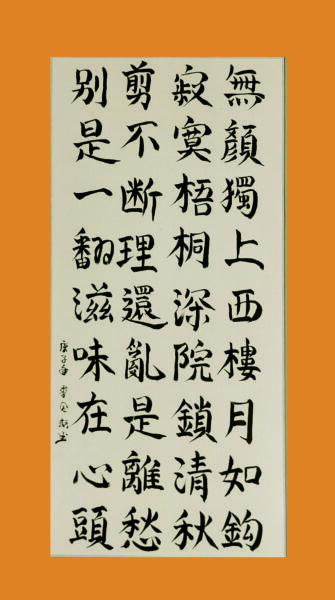 無顔獨上西樓月如鈎
寂寞梧桐深院鎖清秋
剪不断理還亂是離愁
别是一翻滋味在心頭
庚子年